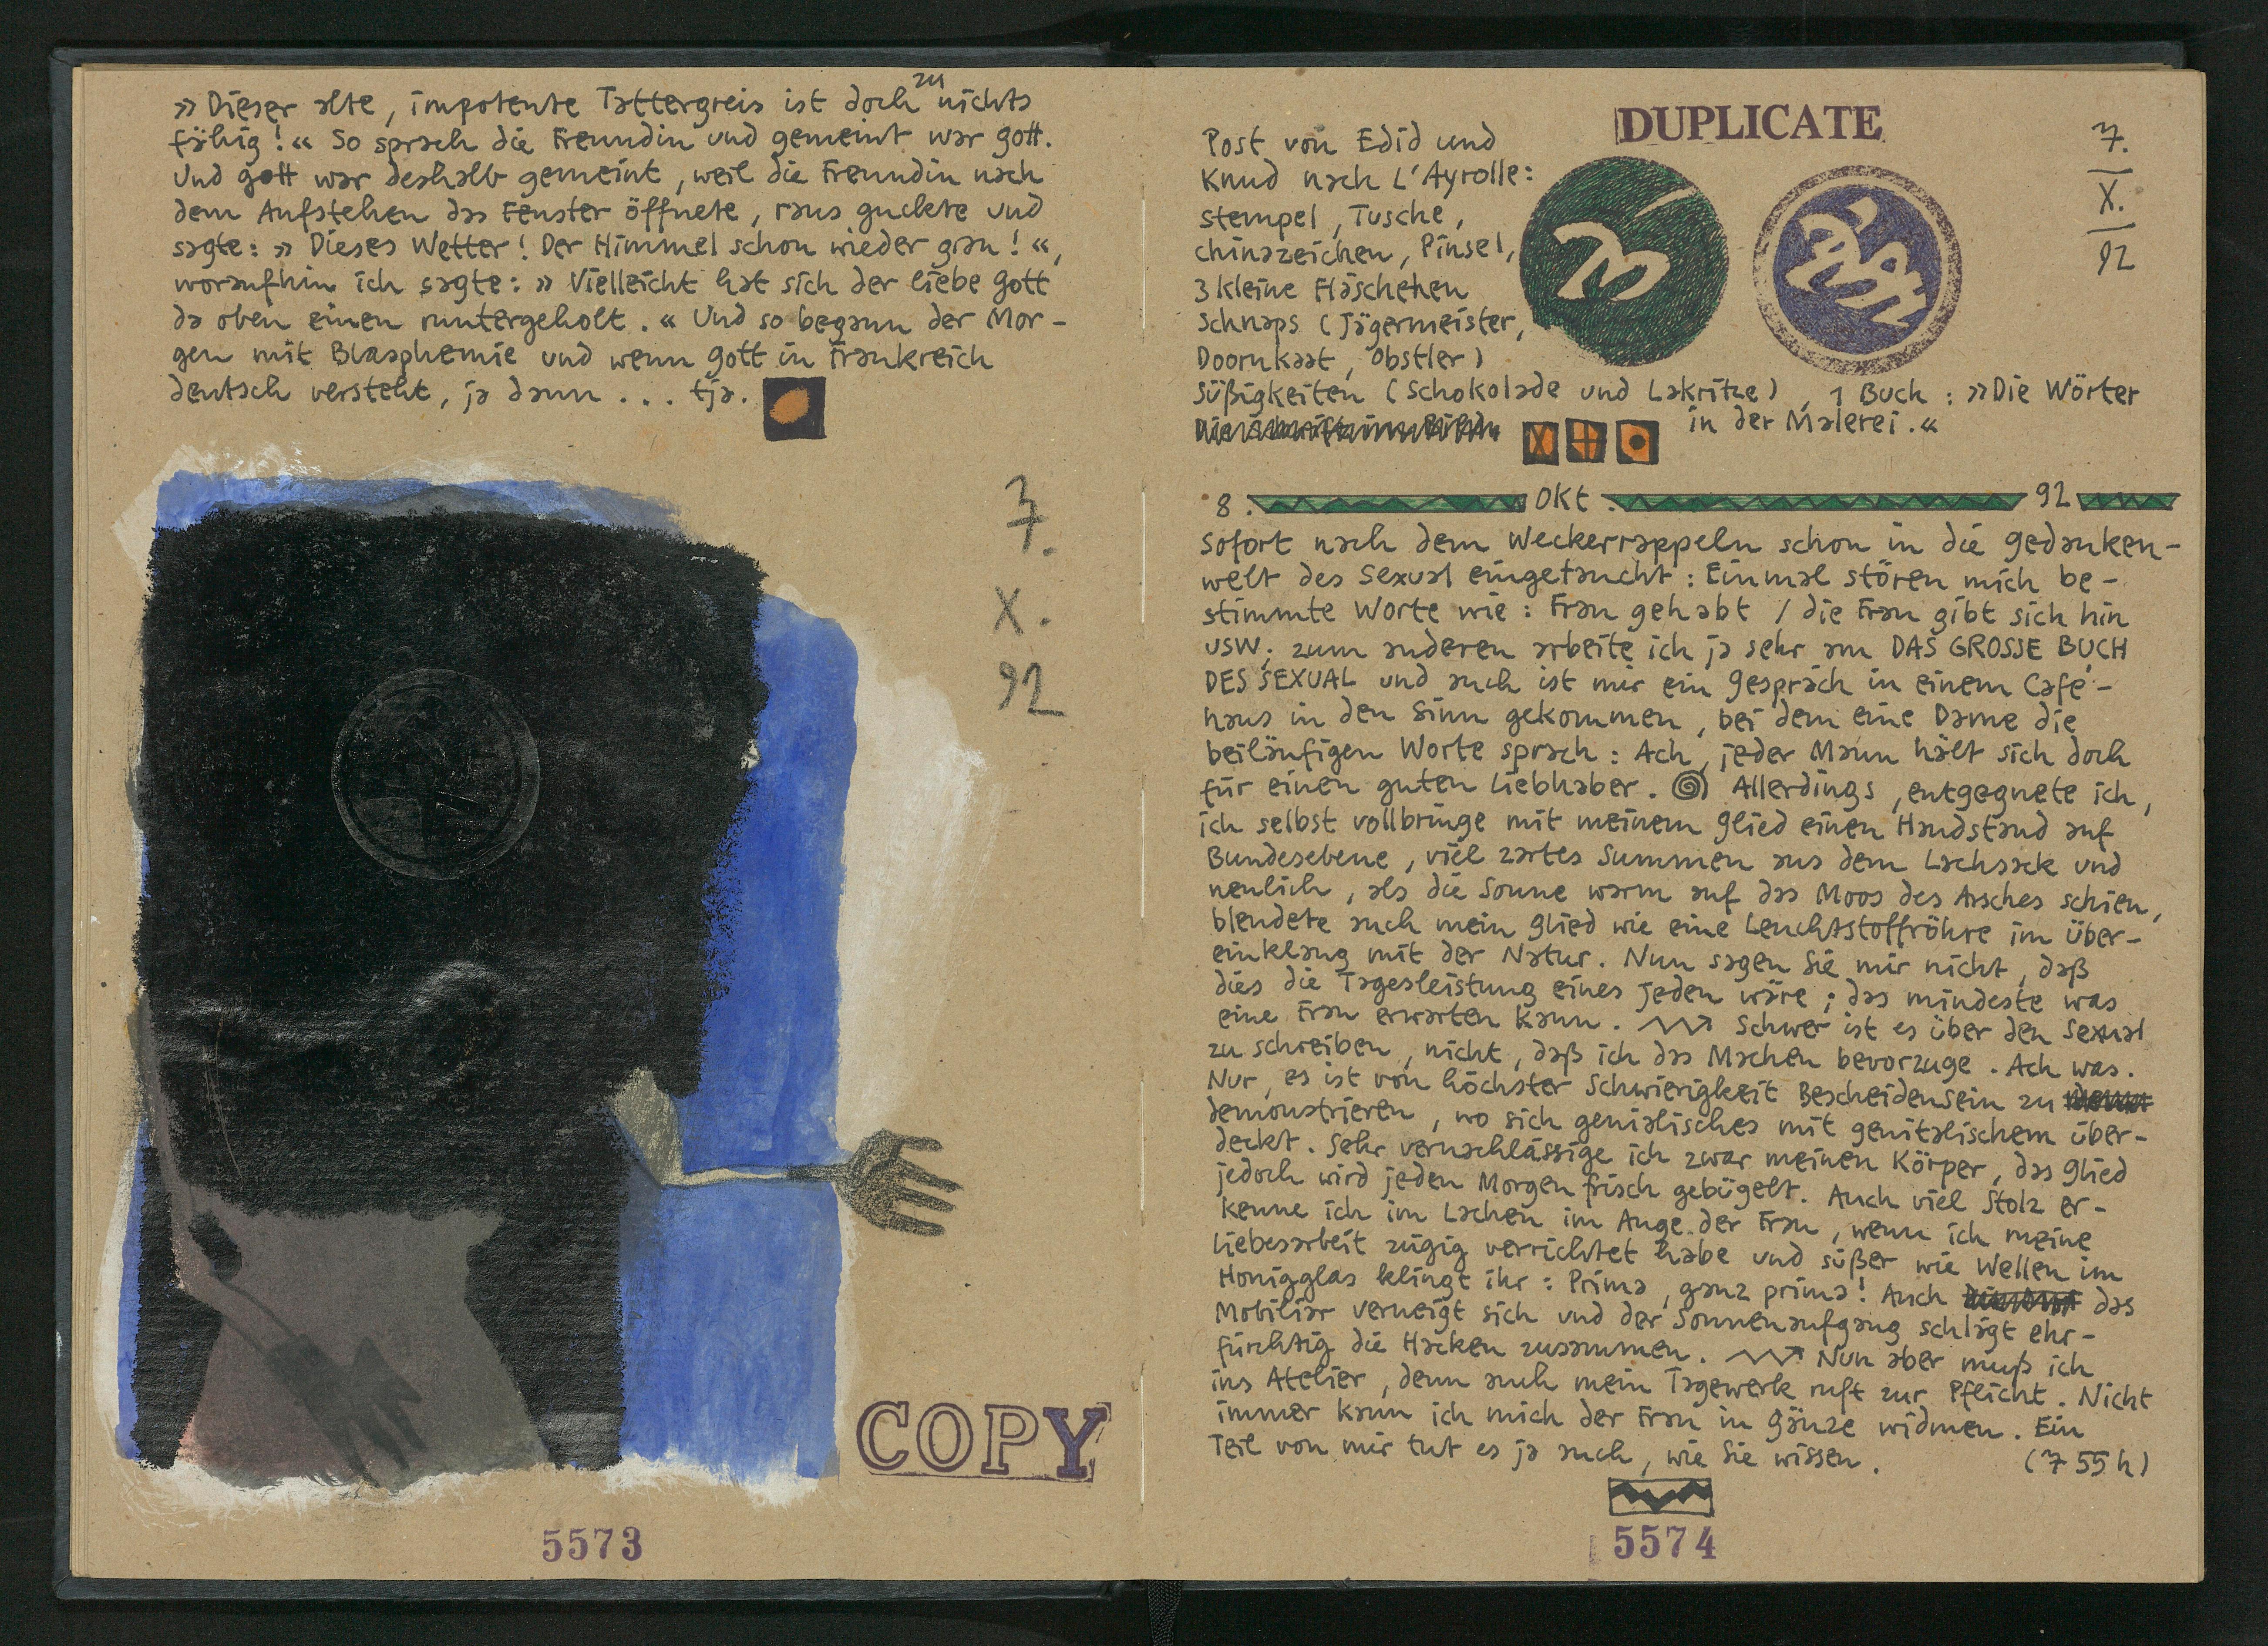 » Dieser alte, impotente Tattergreis ist doch zu nichts
fähig! « So sprach die Freundin und gemeint war Gott.
Und Gott war deshalb gemeint, weil die Freundin nach
dem Aufstehen das Fenster öffnete, raus guckte und
sagte: » Dieses Wetter! Der Himmel schon wieder grau! «,
woraufhin ich sagte: » Vielleicht hat sich der liebe Gott
da oben einen runtergeholt. « Und so begann der Mor-
gen mit Blasphemie und wenn Gott in Frankreich
deutsch versteht, ja dann ... tja.
7.
X.
92
COPY
5573
DUPLICATE
7.
X.
92
Post von Edid und
Knud nach L'Ayrolle:
Stempel, Tusche,
Chinazeichen, Pinsel,
3 kleine Fläschchen
Schnaps (Jägermeister,
Doornkaat, Obstler)
Süßigkeiten (Schokolade und Lakritze), 1 Buch: »Die Wörter
in der Malerei.«
8. Okt. 92
Sofort nach dem Weckerrappeln schon in die Gedanken-
welt des Sexual eingetaucht: Einmal stören mich be-
stimmte Worte wie: Frau gehabt / die Frau gibt sich hin
usw; zum anderen arbeite ich ja sehr am DAS GROSSE BUCH
DES SEXUAL und auch ist mir ein Gespräch in einem Café-
haus in den Sinn gekommen, bei dem eine Dame die
beiläufigen Worte sprach: Ach, jeder Mann hält sich doch
für einen guten Liebhaber. Allerdings, entgegnete ich,
ich selbst vollbringe mit meinem Glied einen Handstand auf
Bundesebene, viel zartes Summen aus dem Lachsack und
neulich, als die Sonne warm auf das Moos des Arsches schien,
blendete auch mein Glied wie eine Leuchtstoffröhre im Über-
einklang mit der Natur. Nun sagen Sie mir nicht, daß
dies die Tagesleistung eines jeden wäre; das mindeste was
eine Frau erwarten kann. Schwer ist es über den Sexual
zu schreiben, nicht, daß ich das Machen bevorzuge. Ach was.
Nur, es ist von höchster Schwierigkeit Bescheidensein zu
demonstrieren, wo sich genialisches mit genitalischem über-
deckt. Sehr vernachlässige ich zwar meinen Körper, das Glied
jedoch wird jeden Morgen frisch gebügelt. Auch viel Stolz er-
kenne ich im Lachen im Auge der Frau, wenn ich meine
Liebesarbeit zügig verrichtet habe und süßer wie Wellen im
Honigglas klingt ihr: Prima, ganz prima! Auch das
Mobiliar verneigt sich und der Sonnenaufgang schlägt ehr-
fürchtig die Hacken zusammen. Nun aber muß ich
ins Atelier, denn auch mein Tagewerk ruft zur Pflicht. Nicht
immer kann ich mich der Frau in Gänze widmen. Ein
Teil von mir tut es ja auch, wie Sie wissen. (7 55 h)
5574